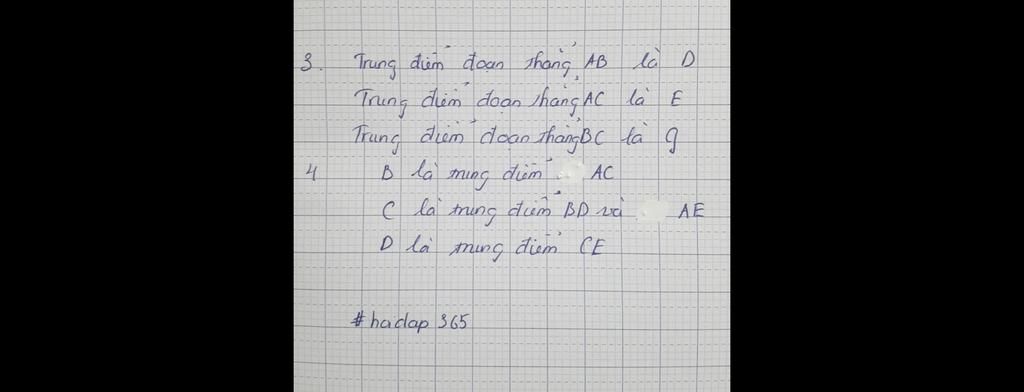 3. Trung điểm đoạn thẳng AB là D
Trung điểm đoạn thẳng AC là E
Trung điểm đoạn thẳng BC là G
4 B là trung điểm AC
C là trung điểm BD và AE
D là trung điểm CE
#hoidap 365